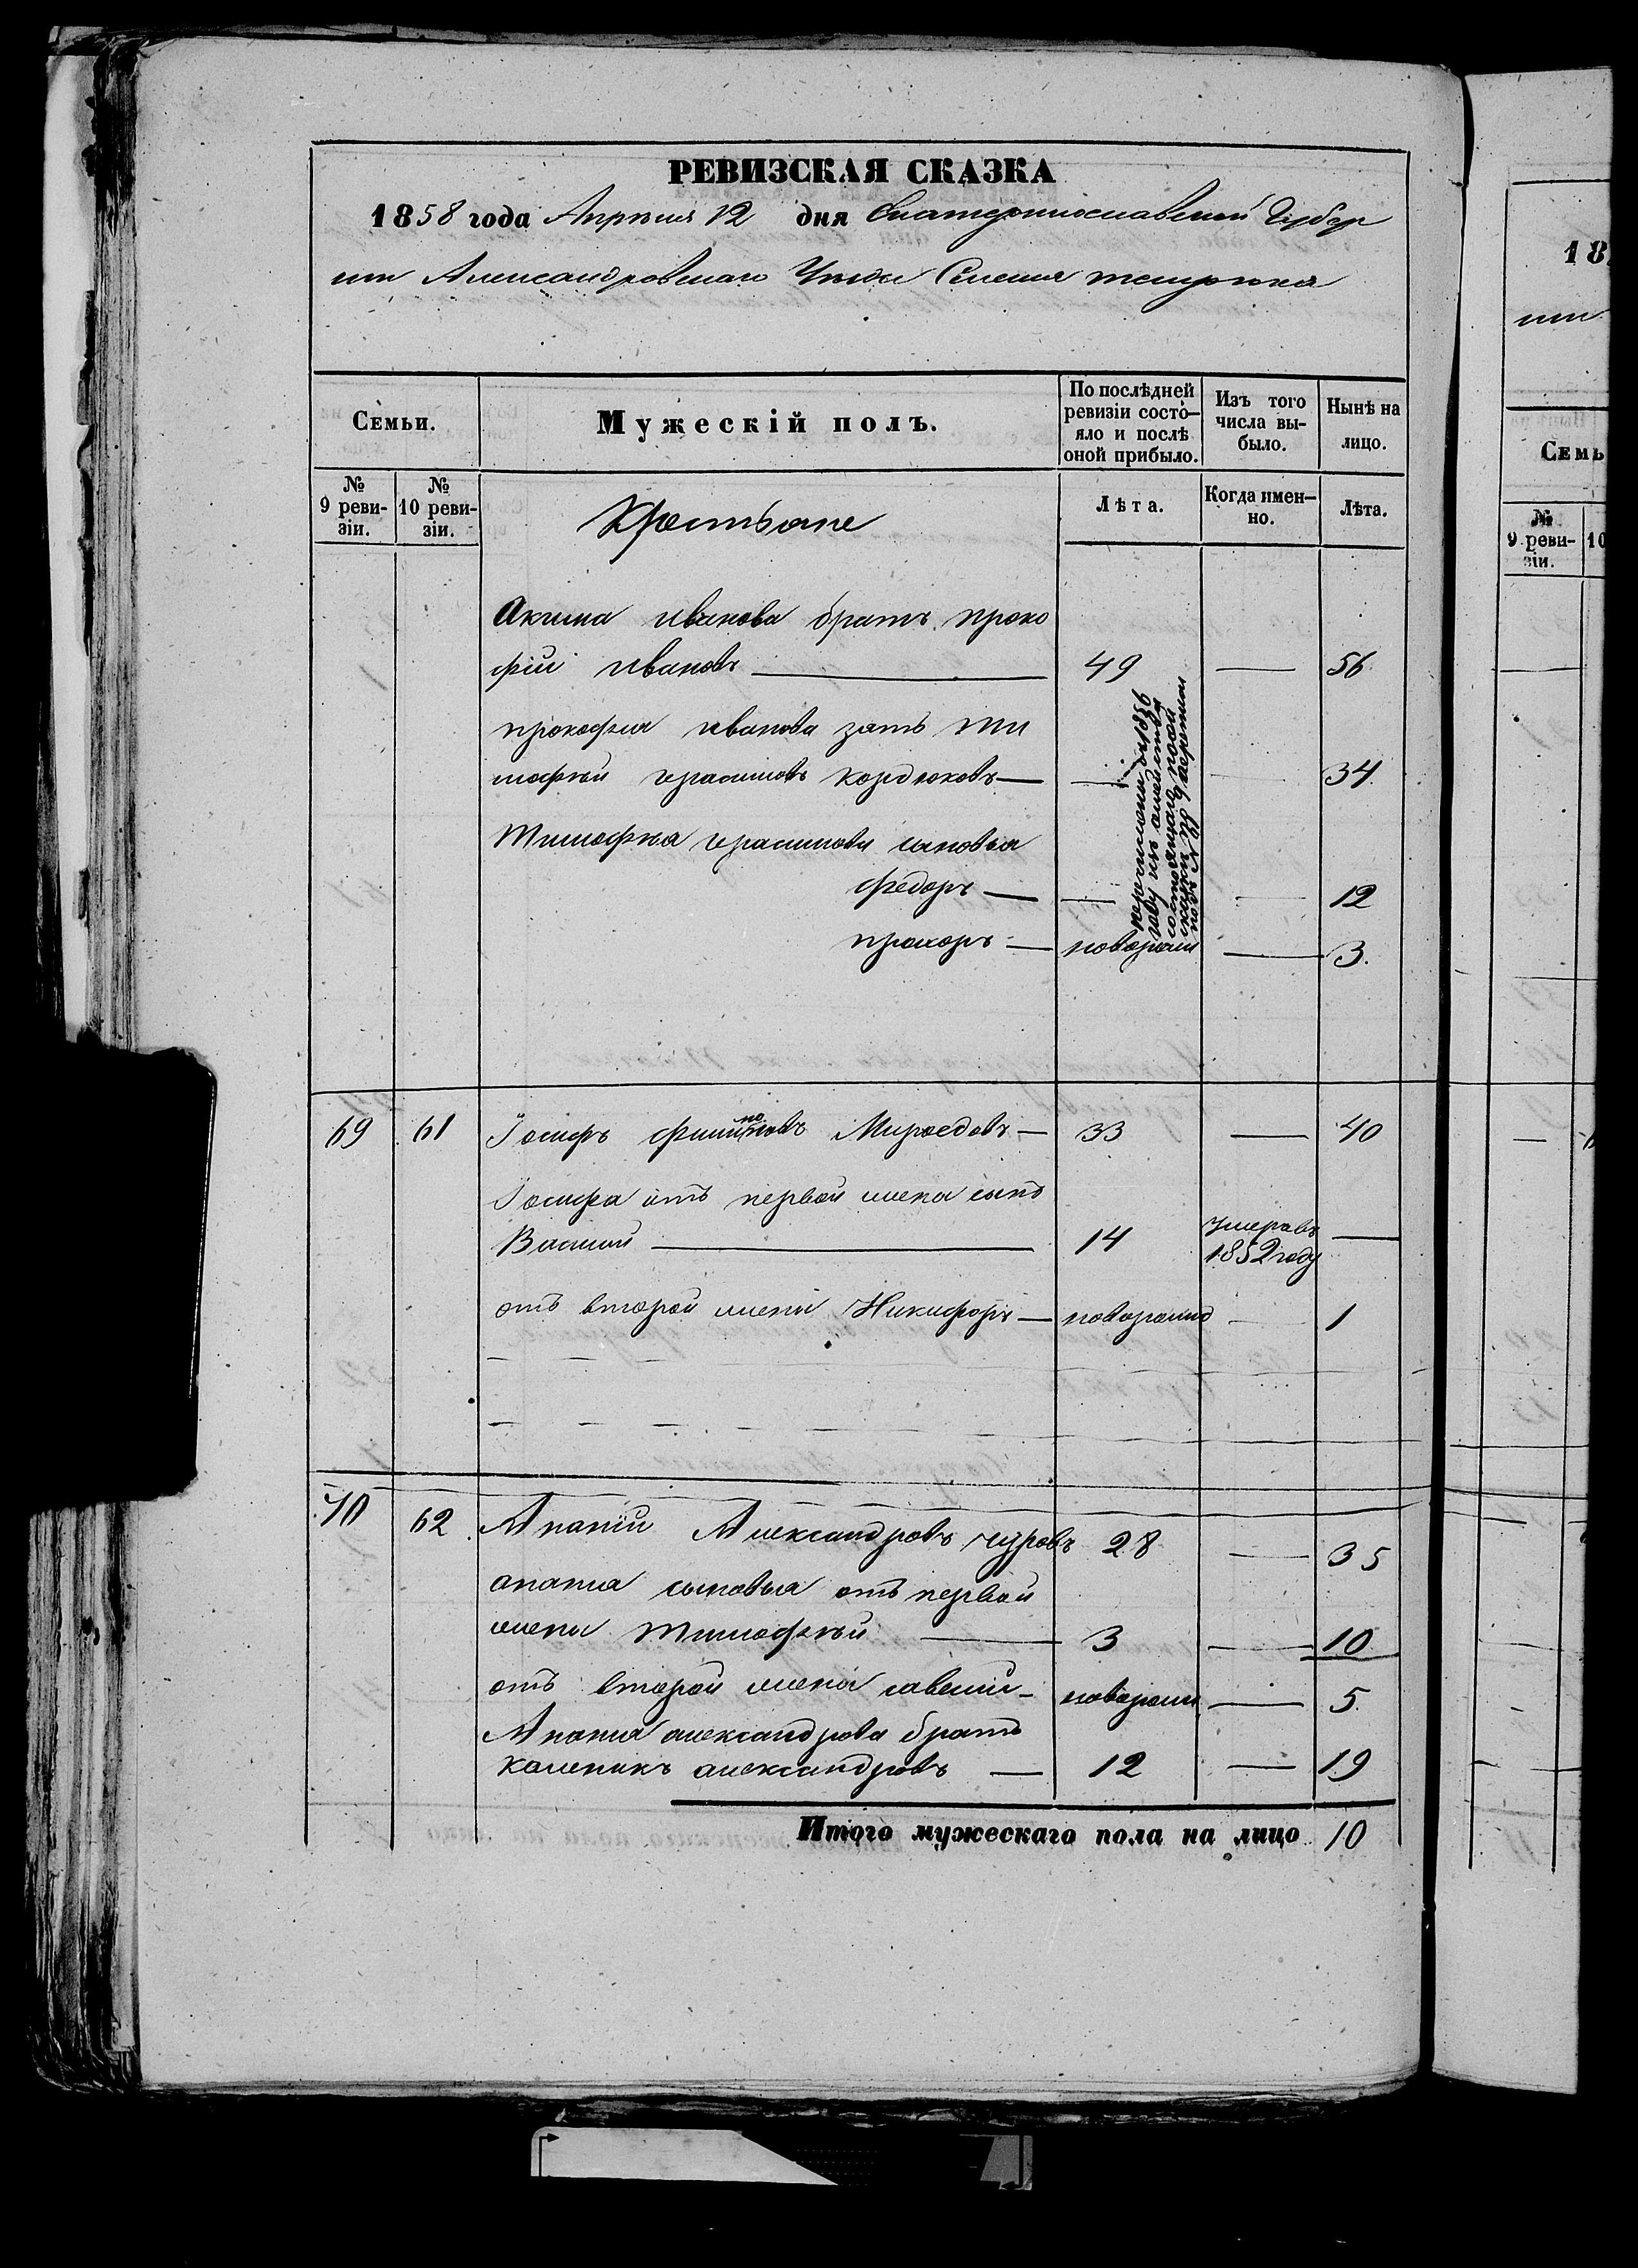 РЕВИЗСКАЯ СКАЗКА
1858 года Апрѣля 12 дня Екатеринославской Губер
нии Александровскаго Уѣзда Селения
Семьи.
Мужескій полъ.
По послѣдней
ревизіи состо-
яло и послѣ
оной прибыло.
Изъ того
числа вы-
было.
Нынѣ на
лицо.
№
9 реви-
зіи.
№
10 реви-
зіи.
Крестьяне
Лѣта.
Когда имен-
но.
Лѣта.
Акима иванова братъ проко
фій ивановъ — 49 — 56
прокофия иванова зять ти
мофѣй герасимовъ — — — 34
Тимофѣя герасимова сыновья
федоръ — — — 12
прохоръ — новорожд — 3.
1856
году изъ семейства
состоящаго по сей
сказки
подъ №
69 61 Іосифъ филиповъ Мироедовъ — 33 — 40
по
Іосифа отъ первой жены сынъ
Василий — 14 умеръ въ 1852 году —
отъ второй жены Никифоръ — новорожд — 1
70 62 Ананій Александровъ чуровъ 28 — 35
анания сыновья отъ первой
жены Тимофѣй — 3 — 10
отъ второй жены савелий — новорожд — 5
Анания александрова братъ
каленикъ александровъ — 12 — 19
Итого мужескаго пола на лицо 10
18
нии
Семь
№
9 реви-
зіи.
10